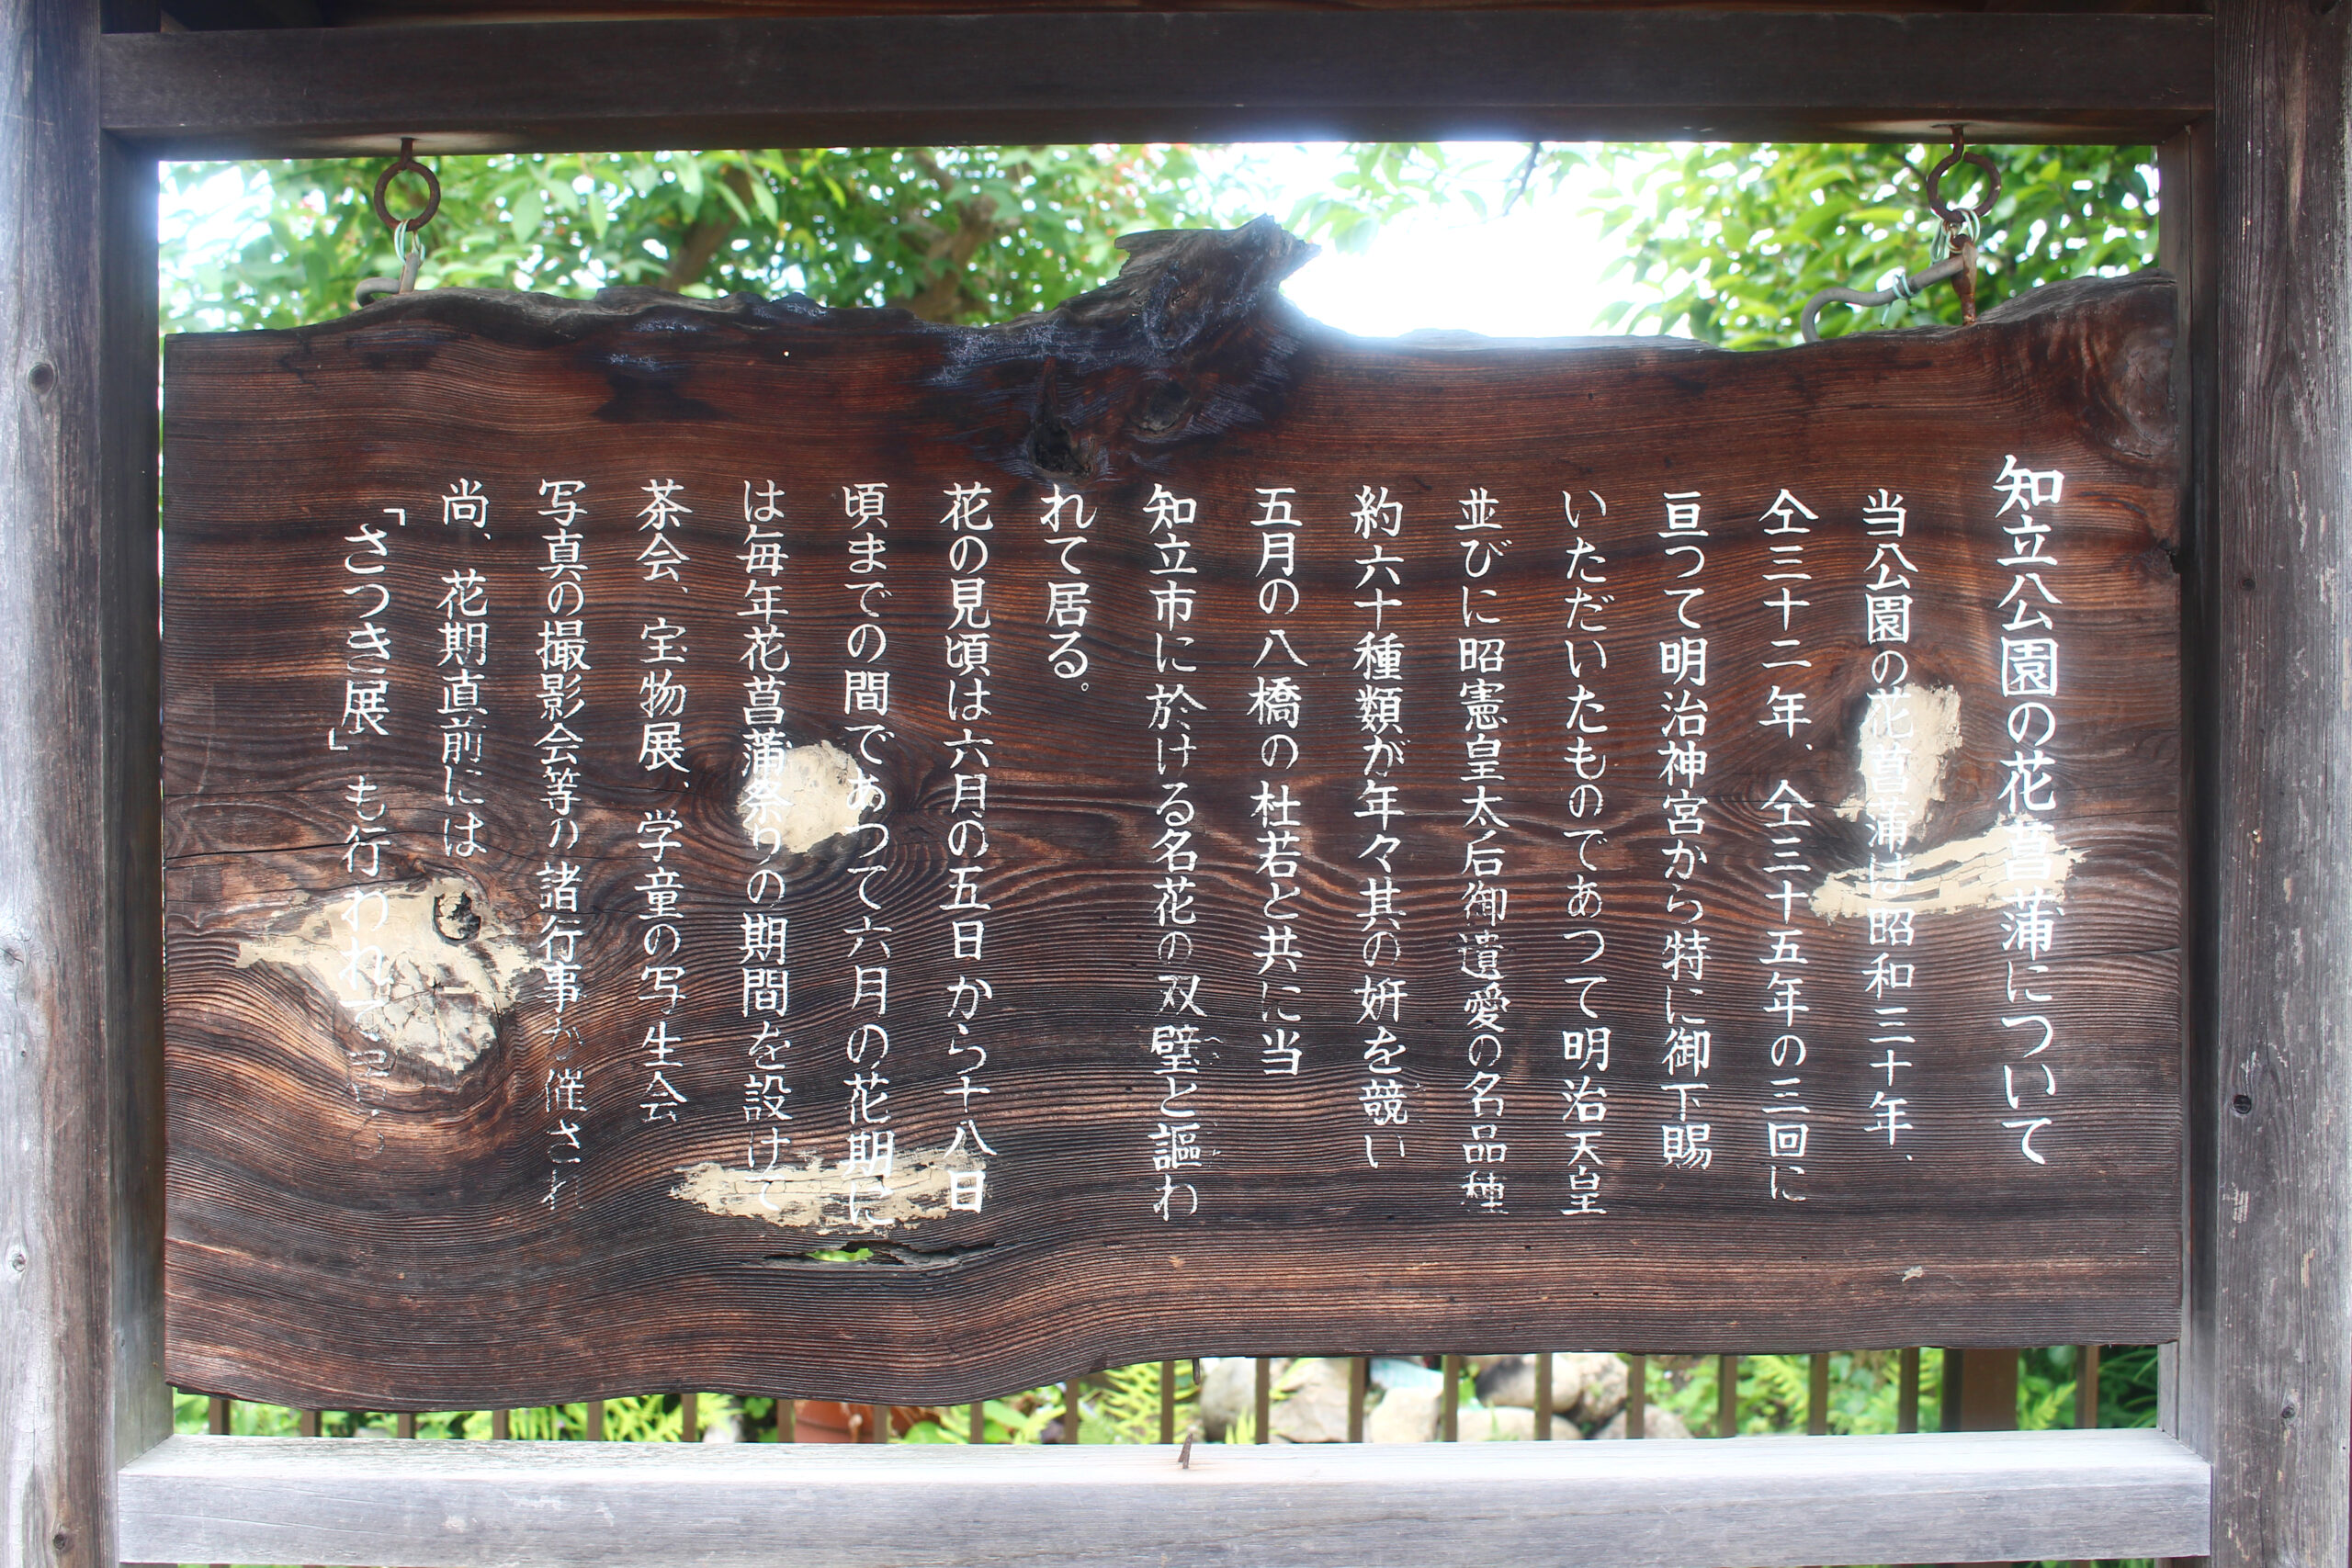 知立公園の花菖蒲について
当公園の花菖蒲は昭和三十年、
仝三十二年、仝三十五年の三回に
亘つて明治神宮から特に御下賜
いただいたものであつて明治天皇
並びに昭憲皇太后御遺愛の名品種
約六十種類が年々其の姸を競い
五月の八橋の杜若と共に当
知立市に於ける名花の双璧と謳わ
れて居る。
花の見頃は六月の五日から十八日
頃までの間であつて六月の花期に
は毎年花菖蒲祭りの期間を設けて
茶会、宝物展、学童の写生会
写真の撮影会等の諸行事が催され
尚、花期直前には
「さつき展」も行われて